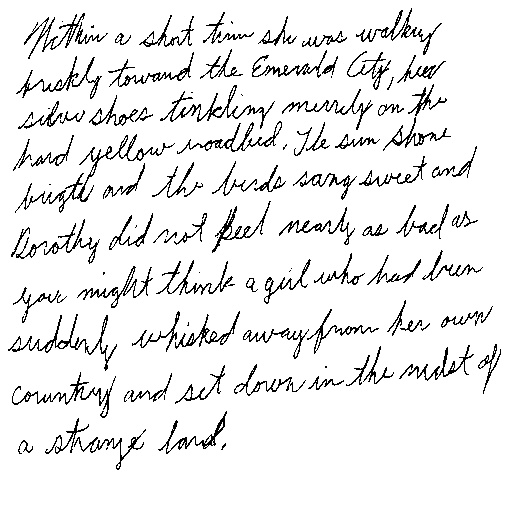 Within a short time she was walking
briskly toward the Emerald City, her
silver shoes tinkling merrily on the
hard yellow roadbed. The sun shone
brigth and the birds sang sweet and
Dorothy did not feel nearly as bad as
you might think a girl who had been
suddenly whisked away from her own
country and set down in the midst of
a strange land.